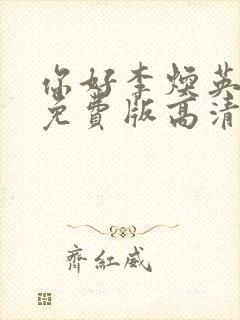 你好李焕英
免費版高清
齊紅威